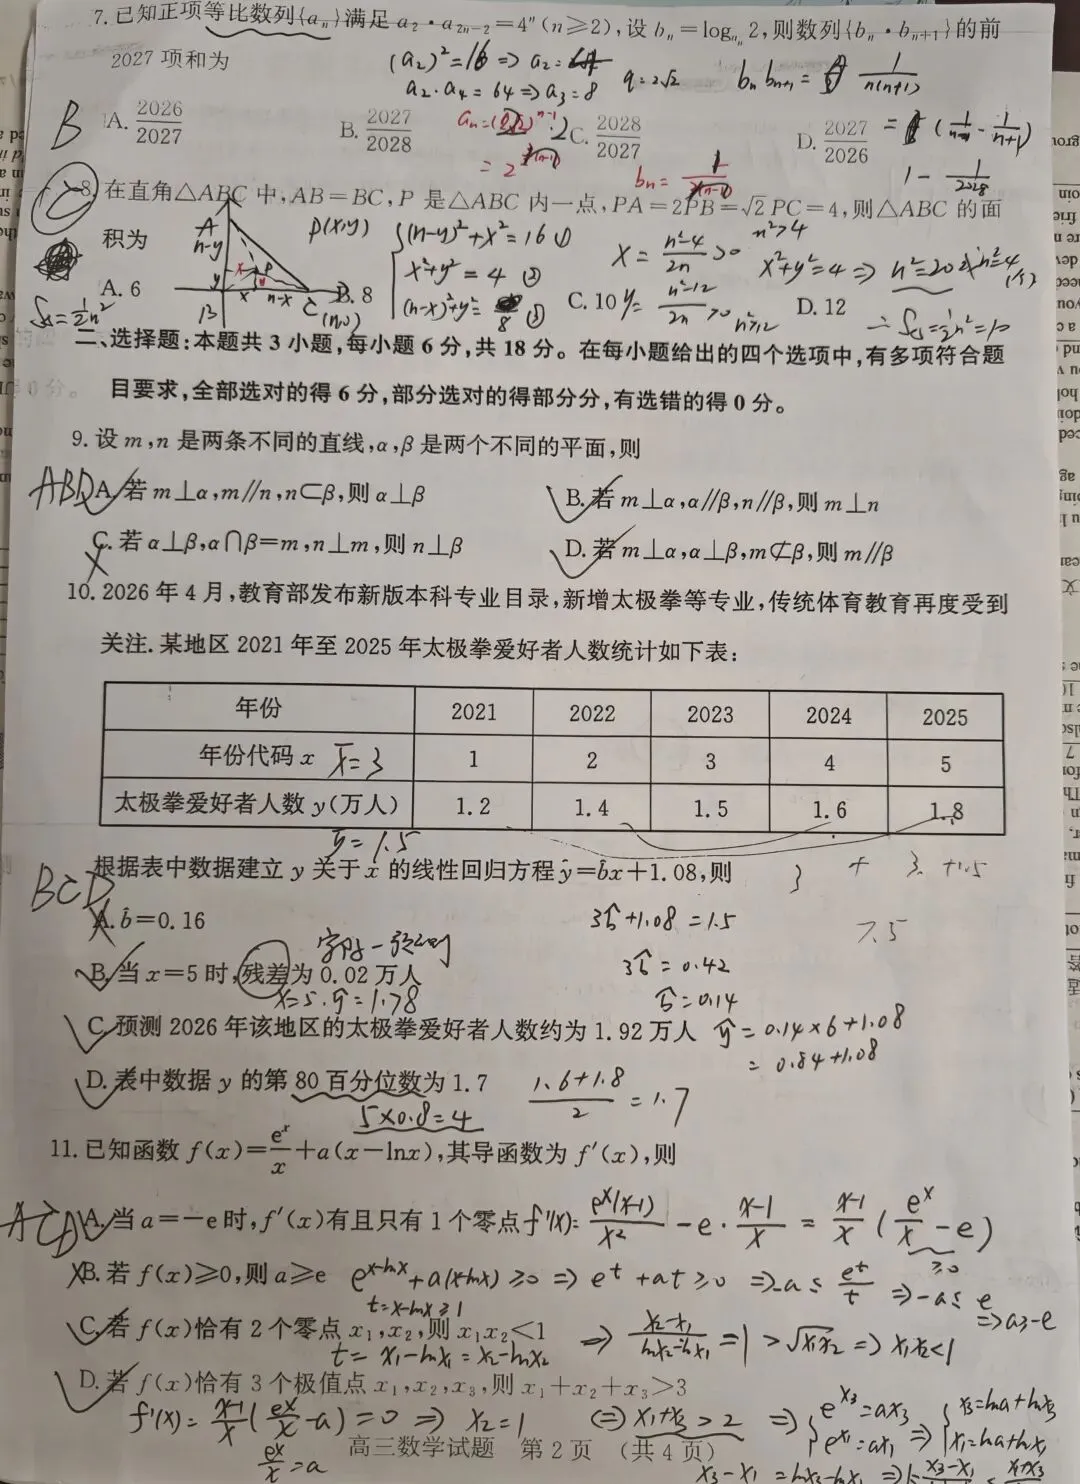 7. 已知正项等比数列{aₙ}满足 a₂·a₂ₙ₋₂=4ⁿ(n≥2),设 bₙ=logₐₙ2,则数列{bₙ·bₙ₊₁}的前
2027 项和为
(a₂)²=16 ⇒ a₂=4
a₂·a₄=64 ⇒ a₃=8
q=2√2
bₙbₙ₊₁=
1/n(n+1)
B
A. 2026/2027
B. 2027/2028
C. 2028/2027
D. 2027/2026
1 - 1/2028
8. 在直角△ABC 中,AB=BC,P 是△ABC 内一点,PA=2PB=√2PC=4,则△ABC 的面
积为
C
P(x,y)
(n-y)²+x²=16 ①
x²+y²=4 ②
(n-x)²+y²=8 ③
x=(n²-4)/2n >0 n²>4
y=(n²-12)/2n >0 n²>12
x²+y²=4 ⇒ n²=20或n²=4
∴ S△=½n²=10
A
n-y
y
x
P
n-x
B
C (n,0)
S△=½n²
A. 6
B. 8
C. 10
D. 12
二、选择题:本题共 3 小题,每小题 6 分,共 18 分。在每小题给出的四个选项中,有多项符合题
目要求,全部选对的得 6 分,部分选对的得部分分,有选错的得 0 分。
9. 设 m,n 是两条不同的直线,α,β 是两个不同的平面,则
ABD
A. 若 m⊥α,m∥n,n⊂β,则 α⊥β
B. 若 m⊥α,α∥β,n∥β,则 m⊥n
C. 若 α⊥β,α∩β=m,n⊥m,则 n⊥β
D. 若 m⊥α,α⊥β,m⊄β,则 m∥β
10. 2026 年 4 月,教育部发布新版本科专业目录,新增太极拳等专业,传统体育教育再度受到
关注. 某地区 2021 年至 2025 年太极拳爱好者人数统计如下表:
年份 2021 2022 2023 2024 2025
年份代码 x x̄=3 1 2 3 4 5
太极拳爱好者人数 y(万人) 1.2 1.4 1.5 1.6 1.8
ȳ=1.5
根据表中数据建立 y 关于 x 的线性回归方程ŷ=b̂x+1.08,则
3 + 3 +1.5
7.5
BCD
A. b̂=0.16
3b̂+1.08=1.5
3b̂=0.42
b̂=0.14
B. 当 x=5 时,残差为 0.02 万人
x=5, ŷ=1.78
C. 预测 2026 年该地区的太极拳爱好者人数约为 1.92 万人
ŷ=0.14×6+1.08
=0.84+1.08
D. 表中数据 y 的第 80 百分位数为 1.7
(1.6+1.8)/2=1.7
5×0.8=4
11. 已知函数 f(x)=eˣ/x+a(x-lnx),其导函数为 f′(x),则
ACD
A. 当 a=-e 时,f′(x)有且只有 1 个零点
f'(x)=eˣ(x-1)/x² - e·(x-1)/x = (x-1)/x (eˣ/x - e)
≥0
B. 若 f(x)≥0,则 a≥e
e^(x-lnx)+a(x-lnx)≥0 ⇒ eᵗ+at≥0 ⇒ -a≤eᵗ/t ⇒ -a≤e
⇒ a≥-e
t=x-lnx≥1
C. 若 f(x)恰有 2 个零点 x₁,x₂,则 x₁x₂<1
⇒ (x₂-x₁)/(lnx₂-lnx₁)=1>√x₁x₂ ⇒ x₁x₂<1
t=x₁-lnx₁=x₂-lnx₂
D. 若 f(x)恰有 3 个极值点 x₁,x₂,x₃,则 x₁+x₂+x₃>3
f'(x)=(x-1)/x(eˣ/x-a)=0 ⇒ x₂=1
⇔ x₁+x₃>2
⇒ {e^x₃=ax₃ e^x₁=ax₁ ⇒ {x₃=lna+lnx₃ x₁=lna+lnx₁
eˣ/x=a
x₃-x₁=lnx₃-lnx₁
高三数学试题 第 2 页 (共 4 页)